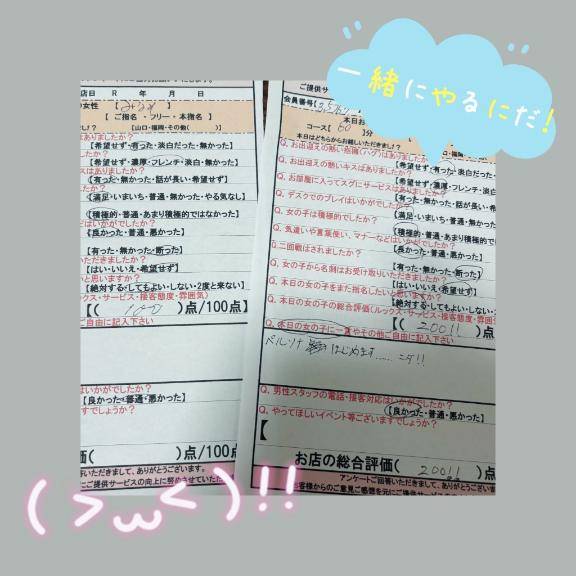 一緒にやるにだ!
店日 R 年 月 日
の女性 【
【 ご指名 ・ フリー ・ 本指名 】
(山口・福岡・その他( ))
はありましたか？
【希望せず・有った・淡白だった・無かった】
ましたか？
【希望せず・濃厚・フレンチ・淡白・無かった】
はありましたか？
【有った・無かった・話が長い・希望せず】
【満足・いまいち・普通・無かった・やる気なし】
【積極的・普通・あまり積極的ではなかった】
はいかがでしたか？
【良かった・普通・悪かった】
【有った・無かった・断った】
ただきましたか？
【はい・いいえ・希望せず】
いと思いますか？
【絶対する・してもよい・しない・2度と来ない】
ックス・サービス・接客態度・雰囲気)
【( 100 )点/100点】
ご自由に記入下さい
はいかがでしたか？
【良かった・普通・悪かった】
すでしょうか？
価( )点/100点
いただきまして、ありがとうございます。
にご提供サービスの向上に努めさせていただ
ご提供サー
会員番号【
本日お
コース【 60 】分
本日はどちらからお越しいただきました？
Q、お出迎えの熱い抱擁(ハグ)はありましたか？
【希望せず・有った・淡白
Q、お出迎えの熱いキスはありましたか？
【希望せず・濃厚・フレンチ・淡白
Q、お部屋に入ってスグにサービスはありましたか？
【有った・無かった・話が長い
Q、デスクでのプレイはいかがでしたか？
【満足・いまいち・普通・無か
Q、女の子は積極的でしたか？
【積極的・普通・あまり積極
Q、気遣いや言葉使い、マナーなどはいかがでしたか？
【良かった・普
Q、二回戦はされましたか？
【有った・無かった・断った】
Q、女の子から名刺はお受け取りいただきましたか？
【はい・いいえ・希望せ
Q、本日の女の子をまた指名したいと思いますか？
【絶対する・してもよい・しない・2
Q、本日の女の子の総合評価(ルックス・サービス・接客態度・雰囲気
【( 200!! )点
Q、本日の女の子に一言やその他ご自由に記入下さい
ペルソナ はじめます……ニダ!!
Q、男性スタッフの電話・接客対応はいかがでしたか？
【良かった・普通・悪
Q、やってほしいイベント等ございますでしょうか？
【
お店の総合評価( 200!! )点
アンケートご回答いただきまして、ありがとうございま
客様からのご意見ご感想を元にご提供サービスの
(>ω<)!!